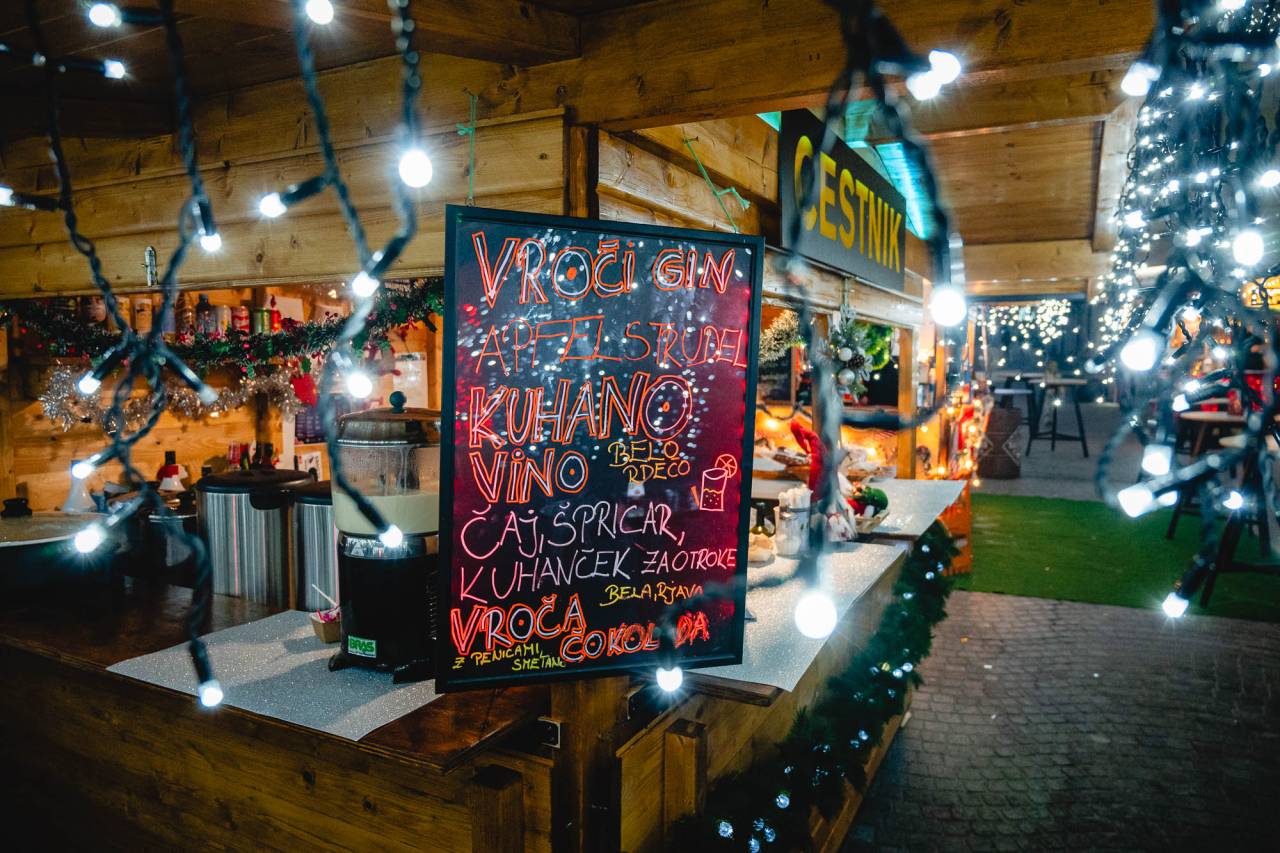 VROČI GIN
APFELSTRUDEL
KUHANO
VINO
BELO
RDEČO
ČAJ, ŠPRICAR,
KUHANČEK ZA OTROKE
BELA, RJAVA
VROČA
ČOKOLADA
Z PENICAMI,
SMETANO
CESTNIK
BRAS